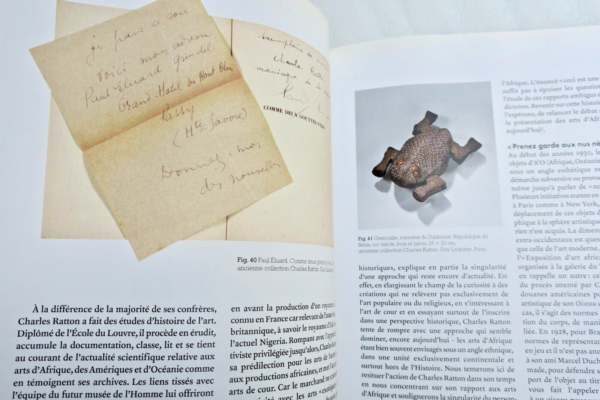 je pars ce soir
voici mon adresse
Paul Eluard Grindel
Grand Hôtel du Mont Blanc
Passy
(Hte Savoie)
Donnez-moi
des nouvelles
exemplaire de
Charles Ratton
COMME DEUX GOUTTES D'EAU
Fig. 40 Paul Éluard, Comme deux gouttes d'eau
ancienne collection Charles Ratton, Guy Ladrière
À la différence de la majorité de ses confrères,
Charles Ratton a fait des études d'histoire de l'art.
Diplômé de l'École du Louvre, il procède en érudit,
accumule la documentation, classe, lit et se tient
au courant de l'actualité scientifique relative aux
arts d'Afrique, des Amériques et d'Océanie comme
en témoignent ses archives. Les liens tissés avec
l'équipe du futur musée de l'Homme lui offriront
en avant la production d'un royaume
connu en France car relevant de l'ancien
britannique, à savoir le royaume d'I
l'actuel Nigeria. Rompant avec l'app
tiviste privilégiée jusqu'alors, Charles
sa prédilection pour les arts de
aux productions africaines, et non
arts de cour. Car le marchand ne
Fig. 41 Grenouille, royaume du Dahomey, République du
Bénin, XIXe siècle, bois et laiton, 25 × 20 cm,
ancienne collection Charles Ratton, Guy Ladrière, Paris
historiques, explique en partie la singularité
d'une approche qui reste encore d'actualité. En
effet, en élargissant le champ de la curiosité à des
créations qui ne relèvent pas exclusivement de
l'art populaire ou du religieux, en s'intéressant à
l'art de cour et en essayant surtout de l'inscrire
dans une perspective historique, Charles Ratton
tente de rompre avec une approche qui semble
dominer, encore aujourd'hui : les arts d'Afrique
étant bien souvent envisagés sous un angle ethnique,
dans une unité exclusivement continentale et
surtout hors de l'Histoire. Nous tenterons ici de
resituer l'action de Charles Ratton dans son temps
en nous concentrant sur son rapport aux arts
d'Afrique et soulignerons la singularité du person-
l'Afrique. L'énoncé « ceci est une
suffit pas à épuiser les question
l'étude de ces rapports ambigus e
dictoires. Revenir sur cette histoire
l'espérons, de relancer le débat
la présentation des arts d'Afri
aujourd'hui.
« Prenez garde aux nus nè
Au début des années 1930, le
objets d'A'O (Afrique, Océanie
sous un angle esthétique ne
démarche subversive ou provoc
même jusqu'à parler de « no
Plusieurs initiatives eurent en
à Paris comme à New York,
déplacement de ces objets d
phique à la sphère artistique
rien n'est acquis. La dimen
extra-occidentaux est questio
que celle de l'art moderne.
l'« Exposition d'art africain
organisée à la galerie de
en rappelle un autre : ce
du procès intenté par C
douanes américaines po
artistique de son Oiseau
cas, il s'agit des normes
tion du corps, de mani
là. En 1928, pour Bran
normes de représentati
en en jeu. Il en était
son ami Marcel Duch
mait, pour se défend
port de l'objet au tit
vous fait penser l'obj